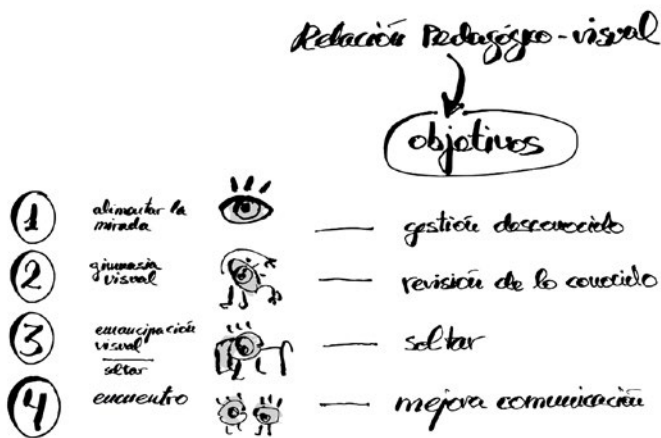 Relación Pedagógico-visual
objetivos
1 alimentar la mirada — gestión desconocido
2 gimnasia visual — revisión de lo conocido
3 emancipación visual soltar — soltar
4 encuentro — mejora comunicación